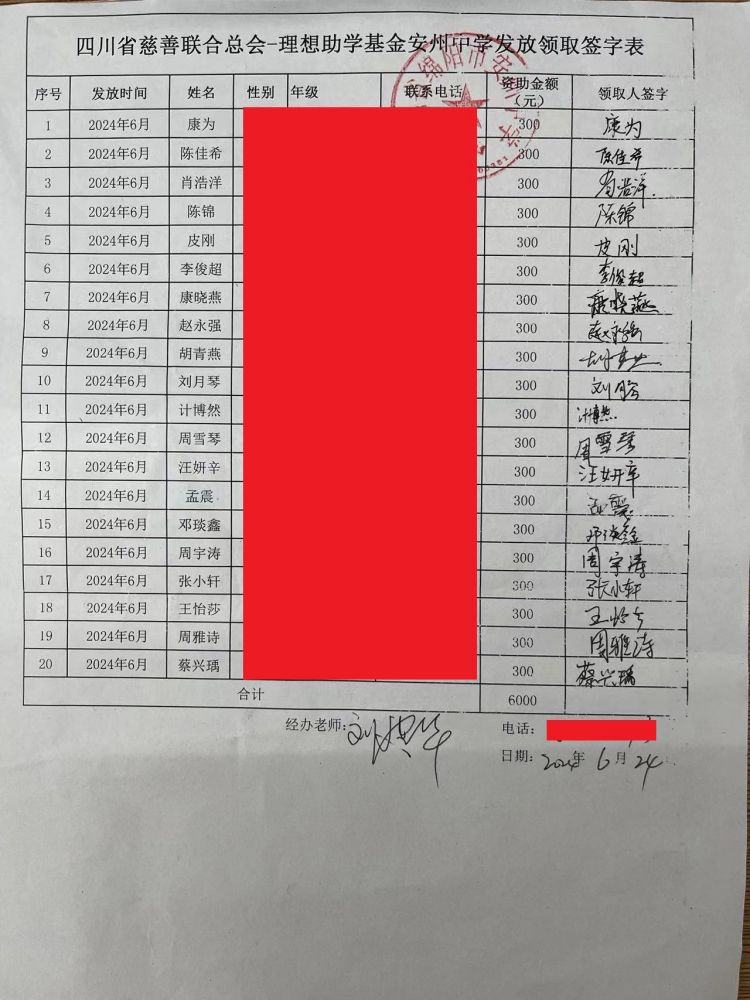 四川省慈善联合总会-理想助学基金安州中学发放领取签字表
序号 发放时间 姓名 性别 年级 联系电话 资助金额（元） 领取人签字
1 2024年6月 康为 300 康为
2 2024年6月 陈佳希 300 陈佳希
3 2024年6月 肖浩洋 300 肖浩洋
4 2024年6月 陈锦 300 陈锦
5 2024年6月 皮刚 300 皮刚
6 2024年6月 李俊超 300 李俊超
7 2024年6月 康晓燕 300 康晓燕
8 2024年6月 赵永强 300 赵永强
9 2024年6月 胡青燕 300
10 2024年6月 刘月琴 300
11 2024年6月 计博然 300 计博然
12 2024年6月 周雪琴 300 周雪琴
13 2024年6月 汪妍辛 300 汪妍辛
14 2024年6月 孟震 300 孟震
15 2024年6月 邓琰鑫 300 邓琰鑫
16 2024年6月 周宇涛 300 周宇涛
17 2024年6月 张小轩 300 张小轩
18 2024年6月 王怡莎 300 王怡莎
19 2024年6月 周雅诗 300 周雅诗
20 2024年6月 蔡兴瑀 300 蔡兴瑀
合计 6000
经办老师： 电话：
日期：2024年6月24